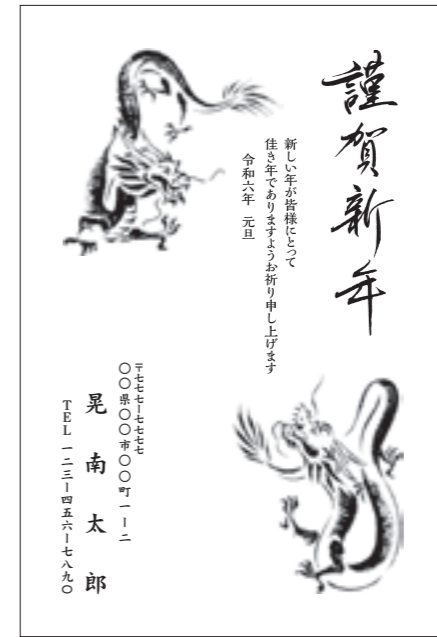 謹賀新年
新しい年が皆様にとって
佳き年でありますようお祈り申し上げます
令和六年　元旦
〒七七七ー七七七七
〇〇県〇〇市〇〇町一ー二
晃南太郎
TEL 一二三ー四五六ー七八九〇